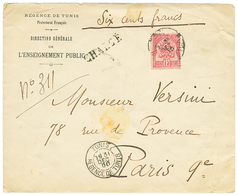 RÉGENCE DE TUNIS
Protectorat Français
DIRECTION GÉNÉRALE
DE
L'ENSEIGNEMENT PUBLIC
Six cents francs
CHARGÉ
N° 311
Monsieur Versini
78 rue de Provence
Paris 9e
TUNIS
RÉGENCE DE TUNIS